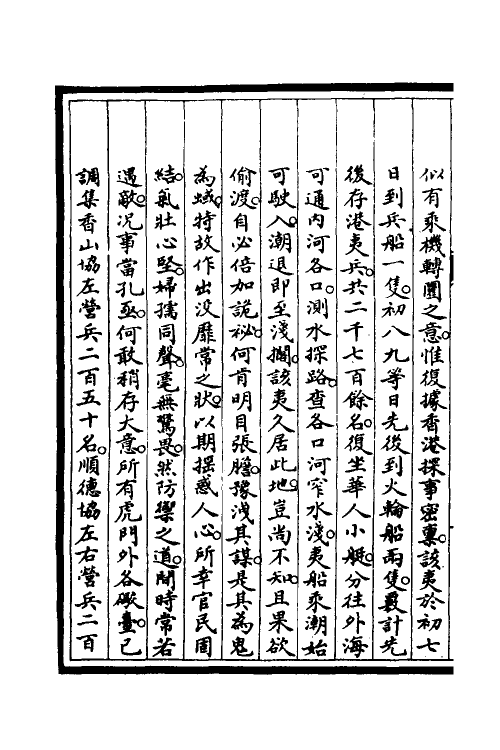 似有乘機轉圜之意惟復據香港探事密稟該夷於初七
日到兵船一隻初八九等日先後到火輪船兩隻覈計先
後存港夷兵共二千七百餘名復坐華人小艇分往外海
可通內河各口測水探路查各口河窄水淺夷船乘潮始
可駛入潮退即至淺擱該夷久居此地豈尚不知且果欲
偷渡自必倍加詭祕何肯明目張膽豫洩其謀是其為鬼
為蜮特故作出沒靡常之狀以期搖惑人心所幸官民團
結氣壯心堅婦孺同聲毫無驚畏然防禦之道閒時常若
遇敵况事當孔亟何敢稍存大意所有虎門外各礮臺已
調集香山協左營兵二百五十名順德協左右營兵二百